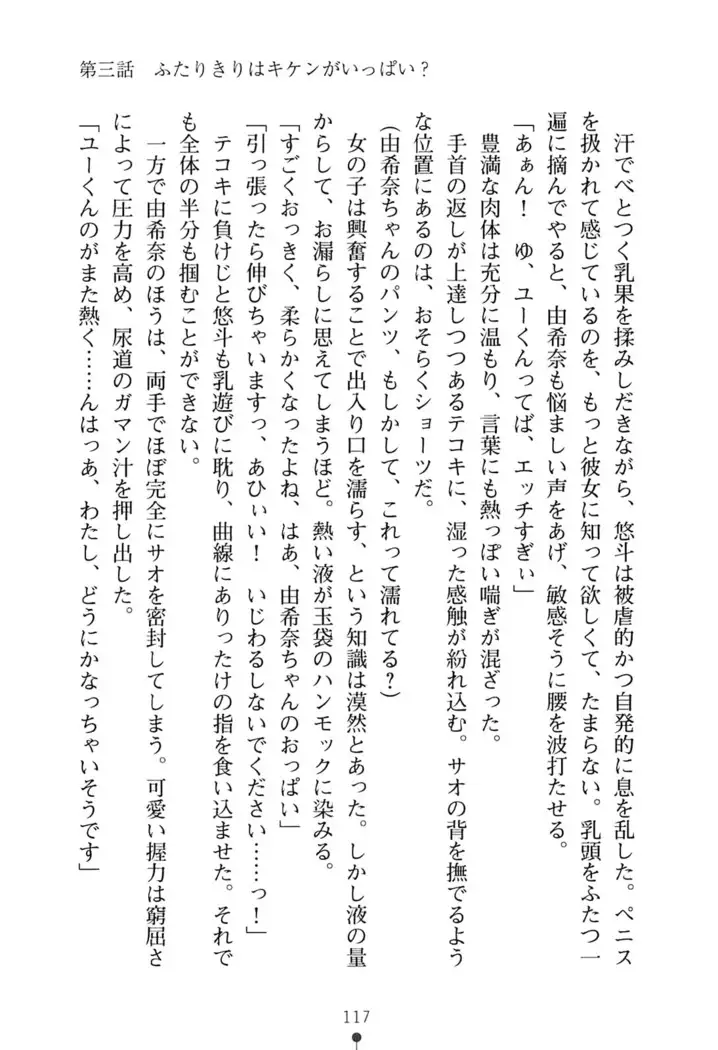 第三話　ふたりきりはキケンがいっぱい？
汗でべとつく乳果を揉みしだきながら、悠斗は被虐的かつ自発的に息を乱した。ペニス
を扱かれて感じているのを、もっと彼女に知って欲しくて、たまらない。乳頭をふたつ一
遍に摘んでやると、由希奈も悩ましい声をあげ、敏感そうに腰を波打たせる。
「あぁん！　ゆ、ユーくんってば、エッチすぎぃ」
豊満な肉体は充分に温もり、言葉にも熱っぽい喘ぎが混ざった。
手首の返しが上達しつつあるテコキに、湿った感触が紛れ込む。サオの背を撫でるよう
な位置にあるのは、おそらくショーツだ。
（由希奈ちゃんのパンツ、もしかして、これって濡れてる？）
女の子は興奮することで出入り口を濡らす、という知識は漠然とあった。しかし液の量
からして、お漏らしに思えてしまうほど。熱い液が玉袋のハンモックに染みる。
「すごくおっきく、柔らかくなったよね、はあ、由希奈ちゃんのおっぱい」
「引っ張ったら伸びちゃいますっ、あひぃい！　いじわるしないでください……っ！」
テコキに負けじと悠斗も乳遊びに耽り、曲線にありったけの指を食い込ませた。それで
も全体の半分も掴むことができない。
一方で由希奈のほうは、両手でほぼ完全にサオを密封してしまう。可愛い握力は窮屈さ
によって圧力を高め、尿道のガマン汁を押し出した。
「ユーくんのがまた熱く……んはっあ、わたし、どうにかなっちゃいそうです」
117